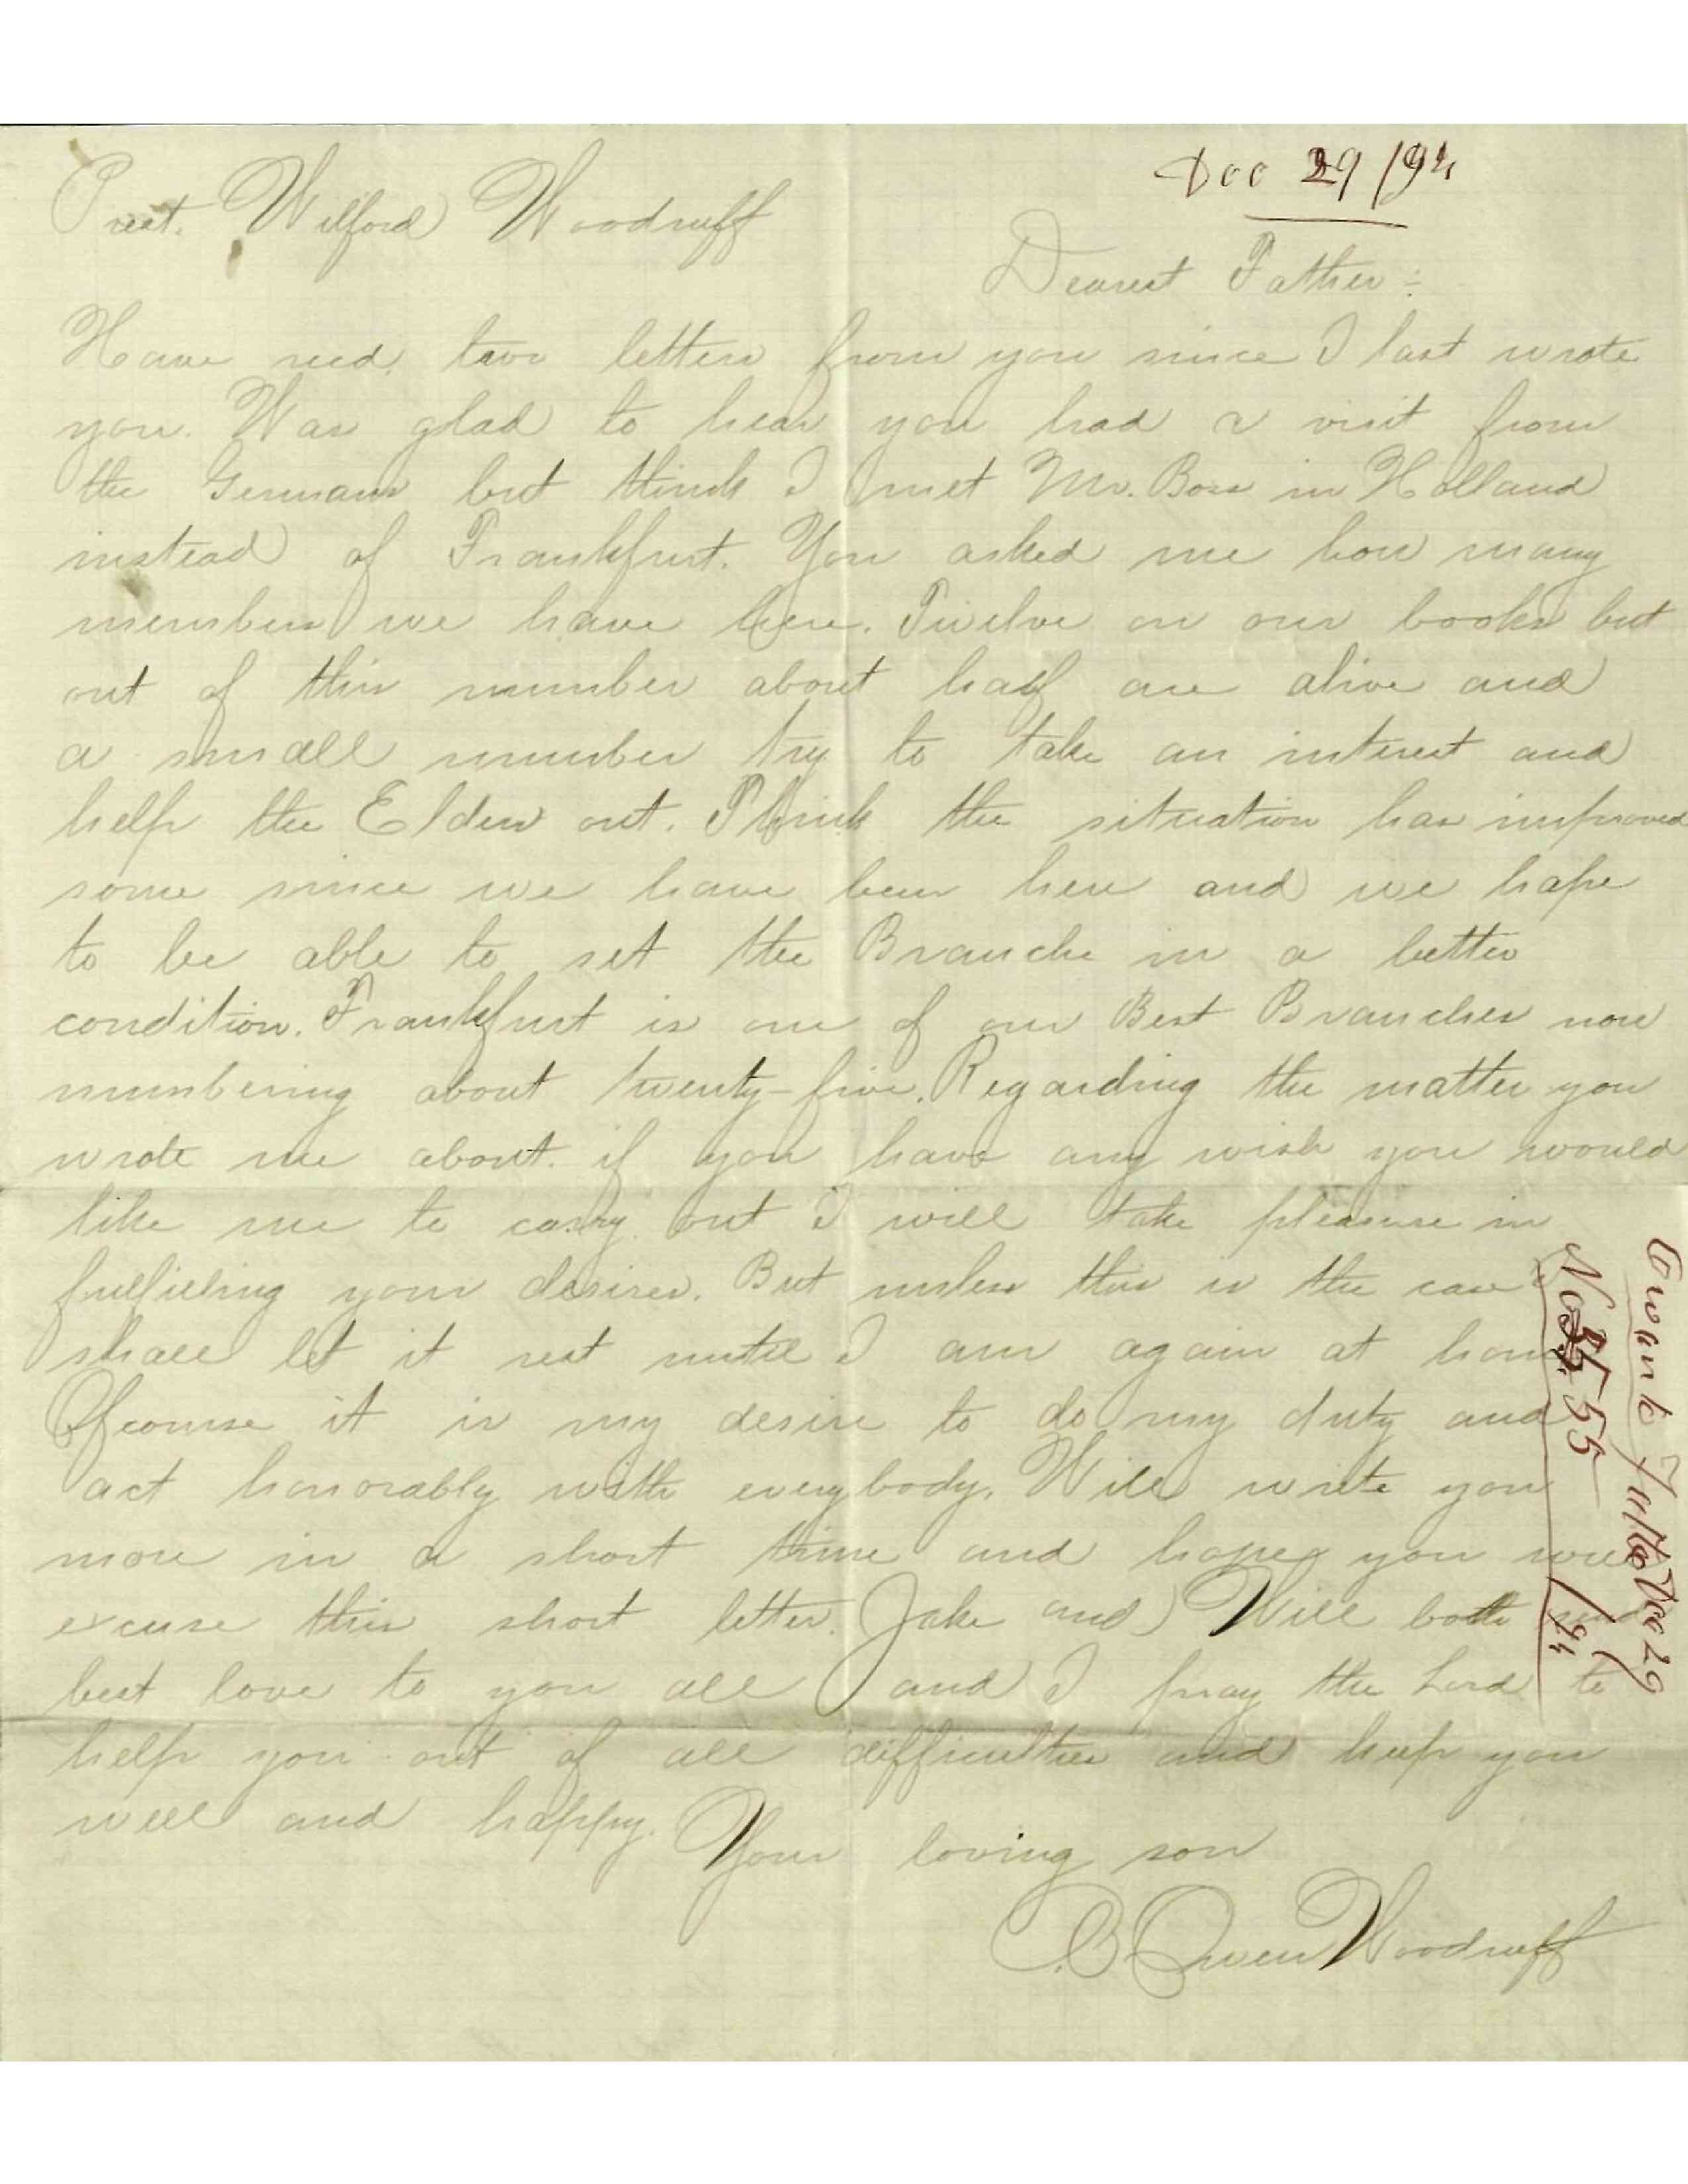 Dec 29/94
Prest. Wilford Woodruff
Dearest Father:
Have recd. two letters from you since I last wrote
you. Was glad to hear you had a visit from
the Germans but think I met Mr. Boss in Holland
instead of Frankfurt. You asked me how many
members we have here. Twelve on our books but
out of this number about half are alive and
a small number try to take an interest and
help the Elders out. Think the situation has improved
some since we have been here and we hope
to be able to set the Branche in a better
condition. Frankfurt is one of our Best Branches now
numbering about twenty-five. Regarding the matter you
wrote me about. if you have any wish you would
like me to carry out I will take pleasure in
fullfilling your desires. But unless this is the case I
shall let it rest until I am again at home
Ofcourse it is my desire to do my duty and
act honorably with everybody. Will write you
more in a short time and hope you will
excuse this short letter. Jake and Will both send
best love to you all and I pray the Lord to
help you out of all difficulties and keep you
well and happy.
Your loving son
A. Owen Woodruff
Owen to Father Dec 29
No 55 /94